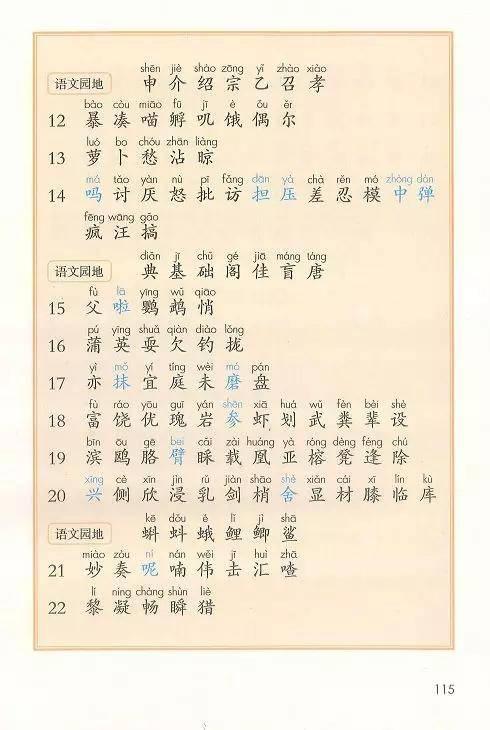 shēn jiè shào zōng yǐ zhào xiào
语文园地 申 介 绍 宗 乙 召 孝
bào còu miāo fū jī è ǒu ěr
12 暴 凑 喵 孵 叽 饿 偶 尔
luó bo chóu zhān liàng
13 萝 卜 愁 沾 晾
má tǎo yàn nù pī fǎng dān yā chà rěn mó zhòng dàn
14 吗 讨 厌 怒 批 访 担 压 差 忍 模 中 弹
fēng wāng gǎo
疯 汪 搞
diǎn jī chǔ gé jiā máng táng
语文园地 典 基 础 阁 佳 盲 唐
fù lā yīng wǔ qiāo
15 父 啦 鹦 鹉 悄
pú yīng shuǎ qiàn diào lǒng
16 蒲 英 耍 欠 钓 拢
yì mǒ yí tíng wèi mò pán
17 亦 抹 宜 庭 未 磨 盘
fù ráo yōu guī yán shēn xiā huá wǔ fèn bèi shè
18 富 饶 优 瑰 岩 参 虾 划 武 粪 辈 设
bīn ōu gē bei cǎi zài huáng yà róng dèng féng chú
19 滨 鸥 胳 臂 睬 载 凰 亚 榕 凳 逢 除
xīng cè xīn jìn rǔ jiàn shāo shè xiǎn cái xī lín kù
20 兴 侧 欣 浸 乳 剑 梢 舍 显 材 膝 临 库
kē dǒu é lǐ jì shā
语文园地 蝌 蚪 蛾 鲤 鲫 鲨
miào zòu ní nán wěi jī huì zhā
21 妙 奏 呢 喃 伟 击 汇 喳
lí níng chàng shùn liè
22 黎 凝 畅 瞬 猎
115